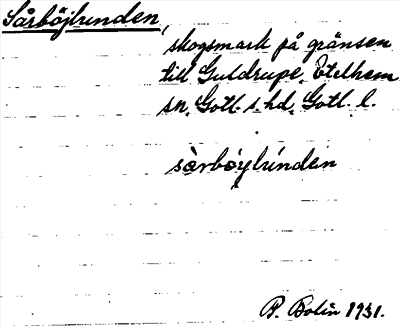 Sårböjlunden,
skogsmark på gränsen
till Guldrupe, Etelhem
sn, Gotl. s. hd, Gotl. l.
sàrbòylúnden
P. Bolin 1931.